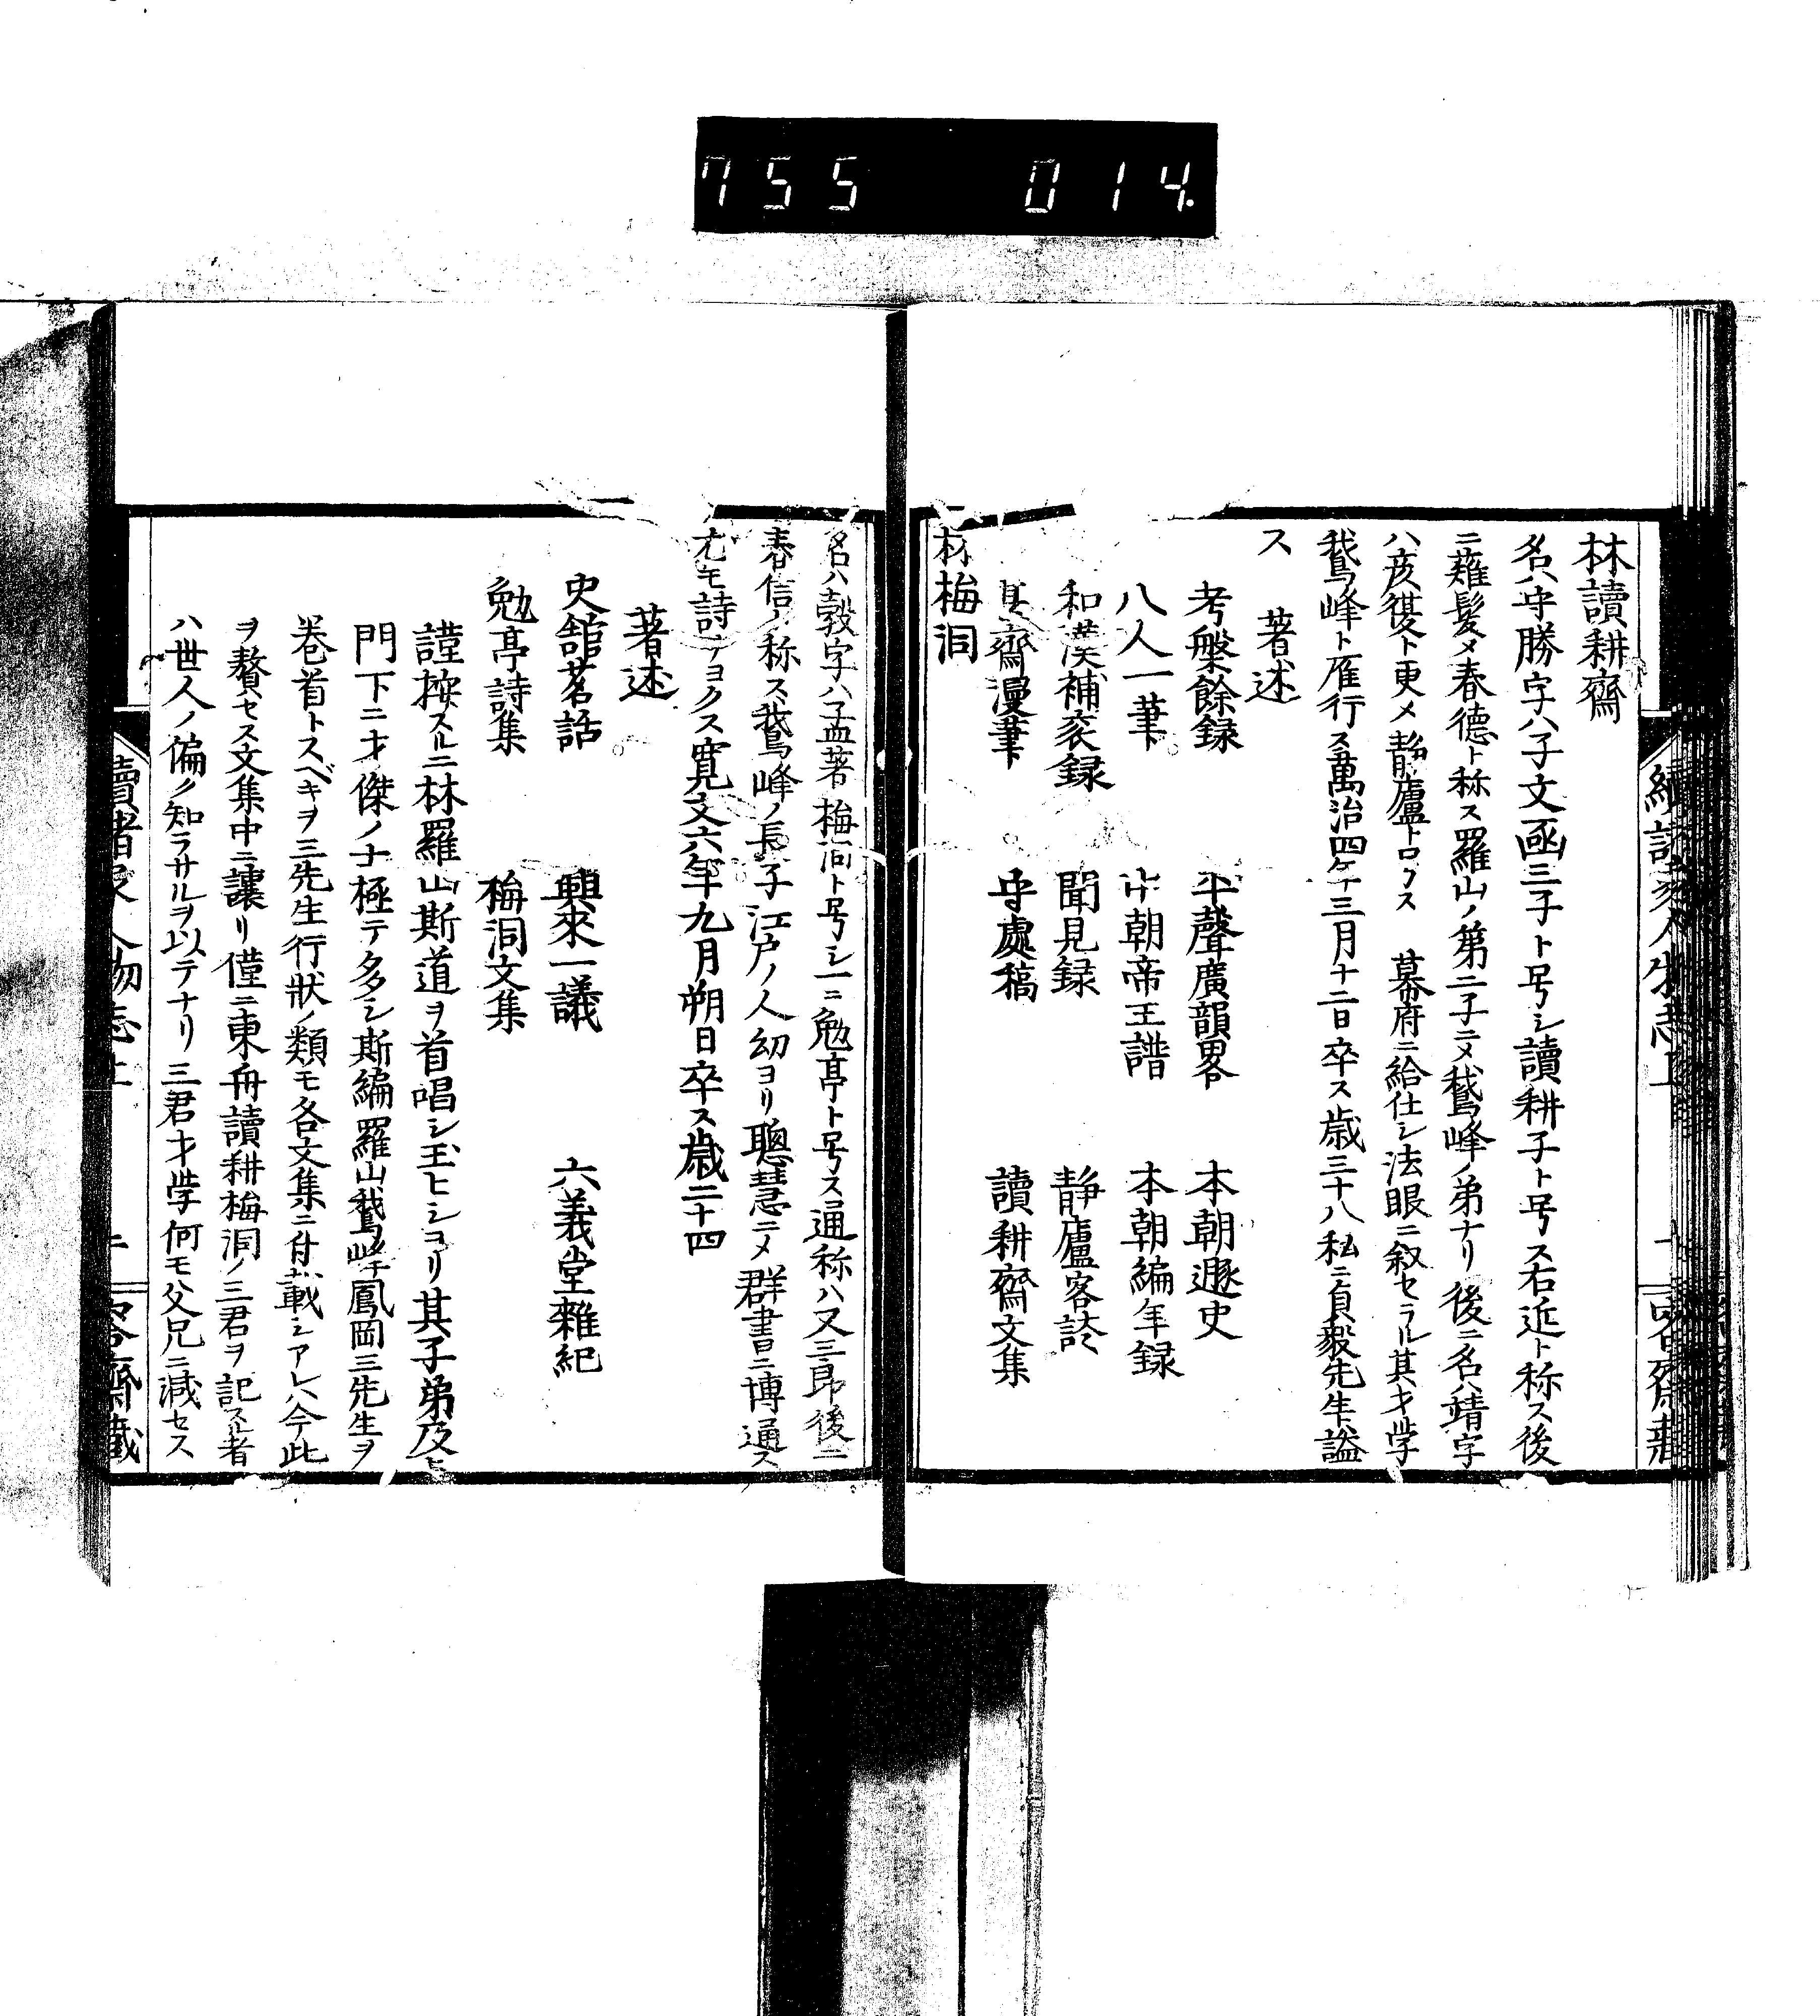 755 014.
林讀耕齋
名ハ守勝字ハ子文函三子ト号シ讀耕子ト号ス右近ト称ス後
ニ薙髪メ春德ト称ス羅山ノ第二子ニメ鵞峰ノ弟ナリ後ニ名ハ靖字
ハ彦復ト更メ静廬トロフス 幕府ニ給仕シ法眼ニ叙セラル其才學
鵞峰ト雁行ス萬治四年三月十二日卒ス歳三十八私ニ貞毅先生ト謚
ス
著述
考槃餘録 平聲廣韻畧 本朝遯史
八人一筆 中朝帝王譜 本朝編年録
和漢補袞録 聞見録 静廬客談
甚齋漫筆 守處稿 讀耕齋文集
林梅洞
名ハ慤字ハ孟著梅洞ト号シ一ニ勉亭ト号ス通称ハ又三郎後ニ
春信ト称ス鵞峰ノ長子江戸ノ人幼ヨリ聰慧ニメ群書ニ博通ス
尤モ詩ヲヨクス寛文六年九月朔日卒ス歳二十四
著述
史舘茗話 興來一議 六義堂雜紀
勉亭詩集 梅洞文集
謹按スルニ林羅山斯道ヲ首唱シ玉ヒシヨリ其子弟及ヒ
門下ニ才傑ノ士極テ多シ斯編羅山鵞峰鳳岡三先生ヲ
巻首トスベキヲ三先生行狀ノ類モ各文集ニ付載シアレハ今此
ヲ贅セス文集中ニ讓リ僅ニ東舟讀耕梅洞ノ三君ヲ記スル者
ハ世人ノ偏ク知ラサルヲ以テナリ三君才學何モ父兄ニ減セス